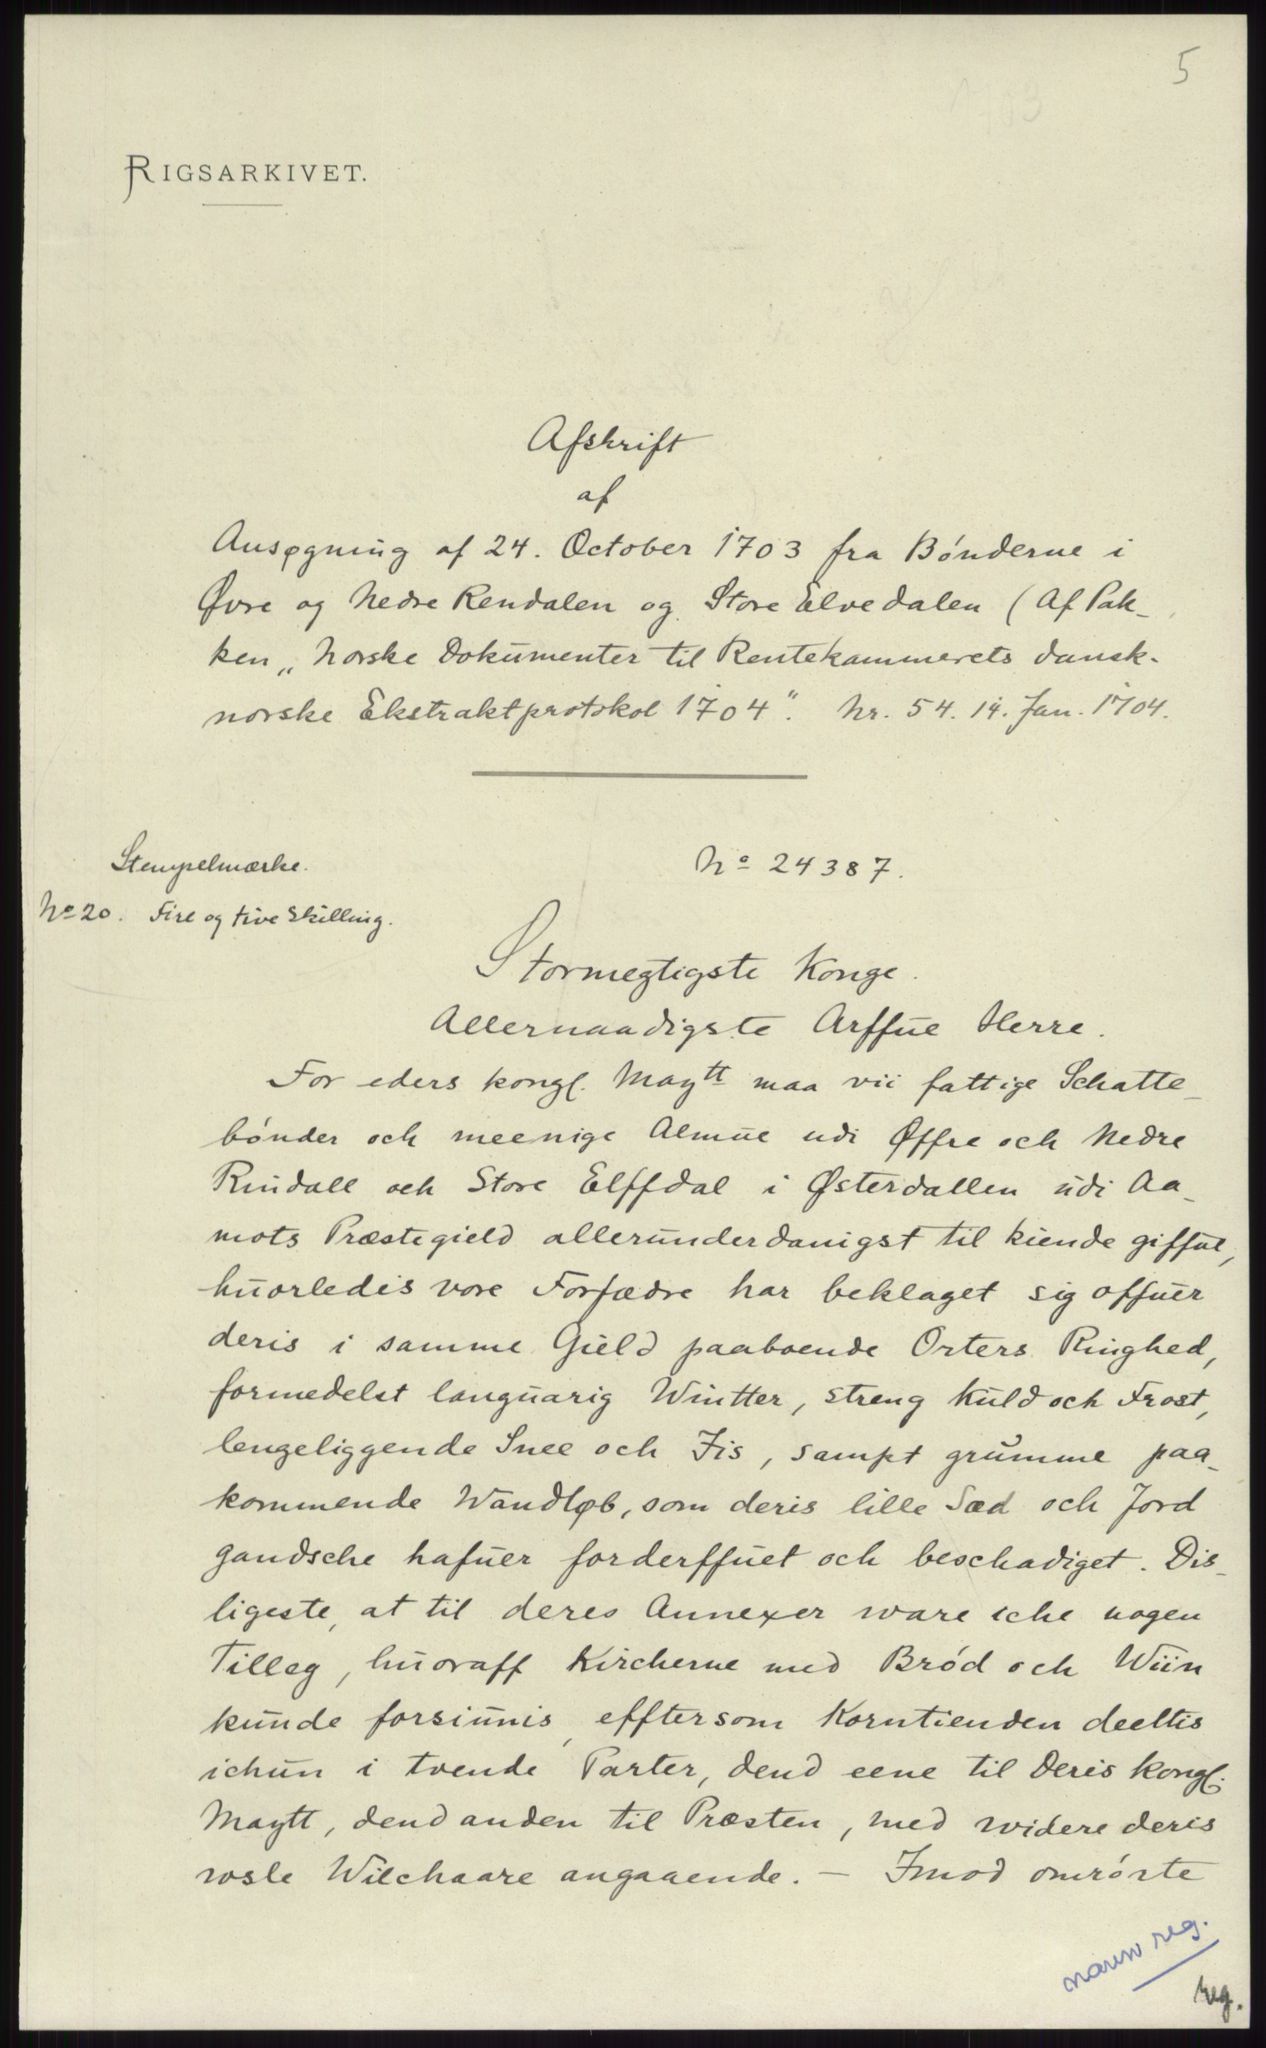 5
RIGSARKIVET.
Afskrift
af
Ansøgning af 24. October 1703 fra Bønderne i
Øvre og Nedre Rendalen og Store Elvedalen (Af Pak-
ken „Norske Dokumenter til Rentekammerets dansk-
norske Ekstraktprotokol 1704". Nr. 54. 14. Jan. 1704.
Stempelmærke.
No 20. Fire og tive Skilling.
No 24387.
Stormegtigste Konge.
Allernaadigste Arffue Herre.
For eders kongl. Maytt maa vii fattige Schatte-
bønder och meenige Almue udi Øffre och Nedre
Rindall och Store Elffdal i Østerdallen udi Aa-
mots Præstegield allerunderdanigst til kiende giffue,
huorledis vore Forfædre har beklaget sig offuer
deris i samme Gield paaboende Orters Ringhed,
formedelst languarig Wintter, streng Kuld och Frost,
lengeliggende Snee och Iis, sampt grumme paa-
kommende Wandløb, som deris lille Sæd och Jord
gandsche hafuer forderffuet och beschadiget. Dis-
ligeste, at til deres Annexer ware iche nogen
Tilleg, huoraff Kircherne med Brød och Wiin
kunde forsiunis, efftersom Korntienden deeltis
ichun i tvende Parter, dend eene til Deris kongl.
Maytt, dend anden til Præsten, med widere deris
rosle Wilchaare angaaende. — Imod omrørte
navn reg.
reg.